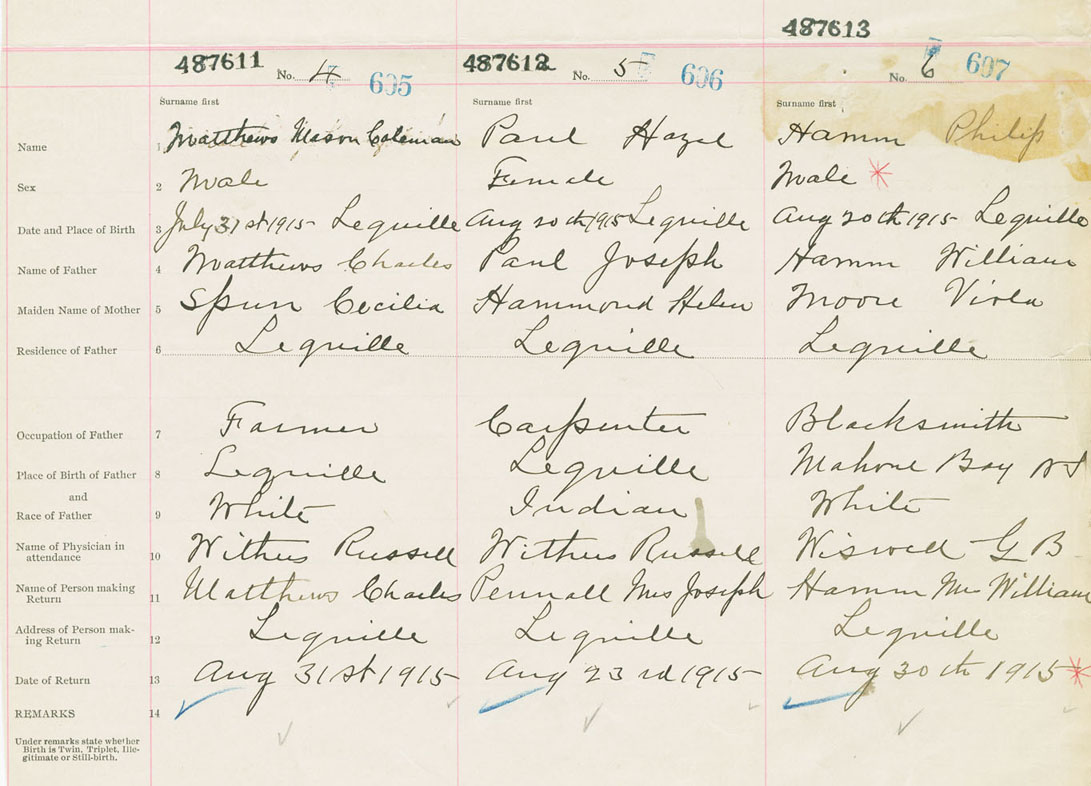 487613
487611 No. 4 605 487612 No. 5 606 No. 6 607
Surname first Surname first Surname first
Name 1 Matthews Mason Coleman Paul Hazel Hamm Philip
Sex 2 Male Female Male *
Date and Place of Birth 3 July 31st 1915 Leqville Aug 20th 1915 Leqville Aug 20th 1915 Leqville
Name of Father 4 Matthews Charles Paul Joseph Hamm William
Maiden Name of Mother 5 Spurr Cecilia Hammond Helen Moore Viola
Residence of Father 6 Leqville Leqville Leqville
Occupation of Father 7 Farmer Carpenter Blacksmith
Place of Birth of Father 8 Leqville Leqville Mahone Bay NS
and
Race of Father 9 White Indian White
Name of Physician in
attendance 10 Withers Russell Withers Russell G B
Name of Person making
Return 11 Matthews Charles Mrs Joseph Hamm Mrs William
Address of Person mak-
ing Return 12 Leqville Leqville Leqville
Date of Return 13 Aug 31st 1915 Aug 23rd 1915 Aug 30th 1915 *
REMARKS 14
Under remarks state whether
Birth is Twin, Triplet, Ille-
gitimate or Still-birth.